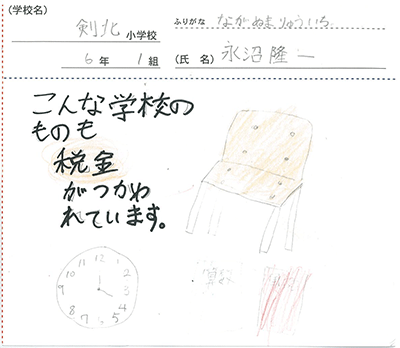 (学校名)
剣北 小学校
ふりがな ながぬまりゅういち
6年 1組
(氏名) 永沼隆一
こんな学校の
ものも
税金
がつかわ
れています。
12
1
2
3
4
5
6
7
8
9
10
11
算数